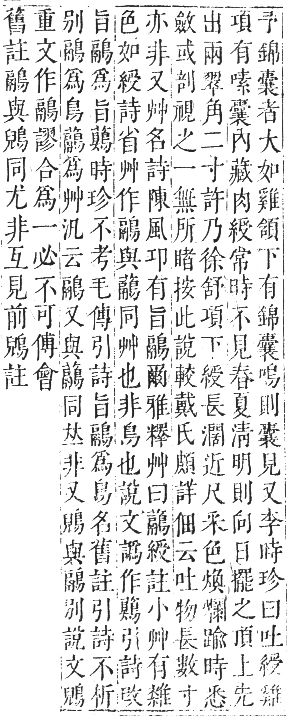 予錦囊者大如雞頷下有錦囊鳴則囊見又李時珍曰吐綬雞
項有嗉囊內藏肉綬常時不見春夏清明則向日擺之頂上先
出兩翠角二寸許乃徐舒項下綬長濶近尺采色煥爛踰時悉
斂或剖視之一無所睹按此說較戴氏頗詳佃云吐物長數寸
亦非又艸名詩陳風卭有旨鷊爾雅釋艸曰虉綬註小艸有雜
色如綬詩省艸作鷊與虉同艸也非鳥也說文譌作引詩改
旨鷊為旨時珍不考毛傳引詩旨鷊為鳥名舊註引詩不析
別鷊為鳥虉為艸汎云鷊又與虉同𠀤非又鶂與鷊別說文鶂
重文作鷊謬合為一必不可傅會
舊註鷊與鶂同尤非互見前鶂註